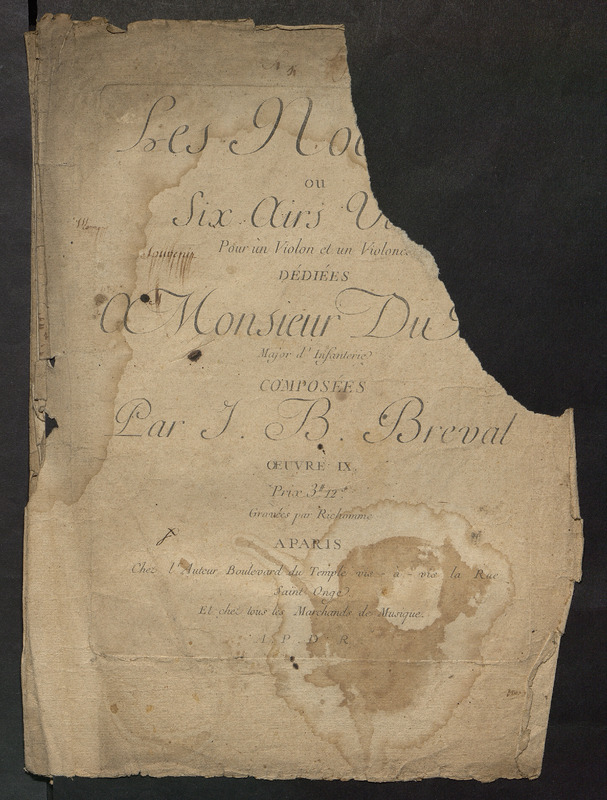 Les No
ou
Six Airs V
Pour un Violon et un Violonc
DÉDIÉES
A Monsieur Du
Major d'Infanterie
COMPOSÉES
Par J. B. Breval
ŒUVRE IX.
Prix 3# 12s
Gravées par Richomme
A PARIS
Chez l'Auteur Boulevard du Temple vis-à-vis la Rue
Saint Onge
Et chez tous les Marchands de Musique.
A. P. D. R.